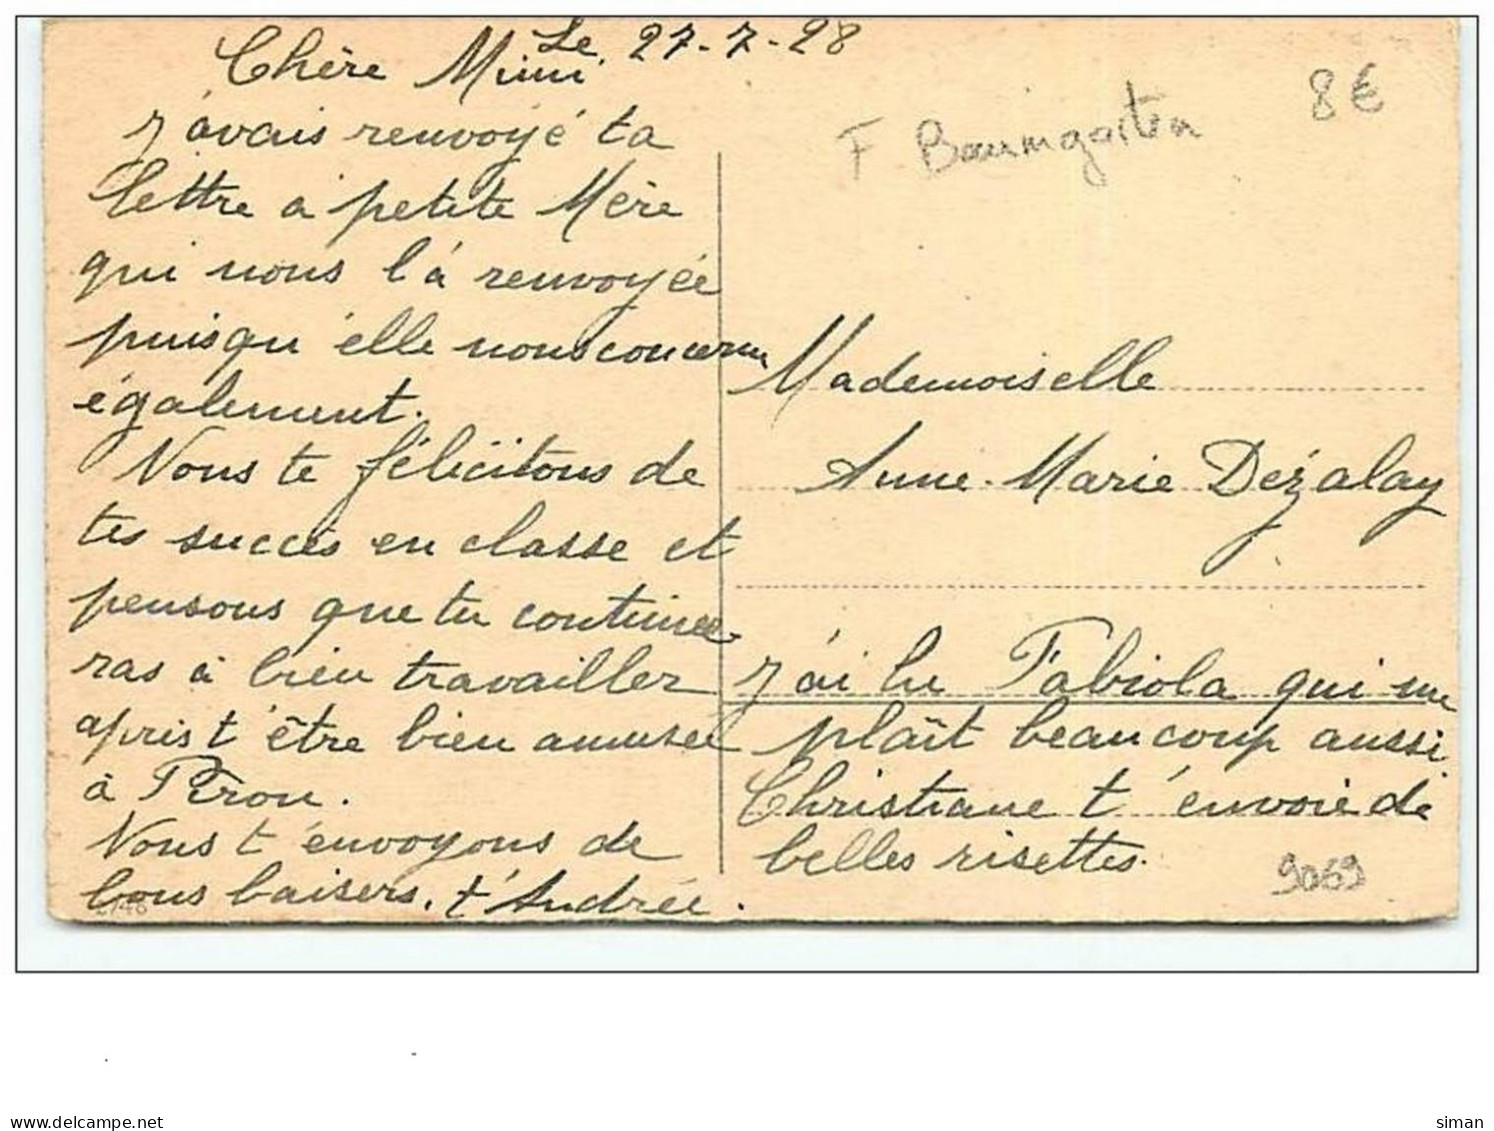 Le 27-7-28
Chère Mimi
J'avais renvoyé ta
lettre à petite Mère
qui nous l'á renvoyée
puisqu'elle nous concerne
également.
Nous te félicitons de
tes succès en classe et
pensons que tu continue
ras à bien travailler
après t'être bien amusée
à Pirou.
Nous t'envoyons de
bons baisers. t'Andrée.
2748
F Baumgarten
8€
Mademoiselle
Anne-Marie Dézalay
J'ai lu Fabiola qui me
plaît beaucoup aussi
Christiane t'envoie de
belles risettes.
9069
siman